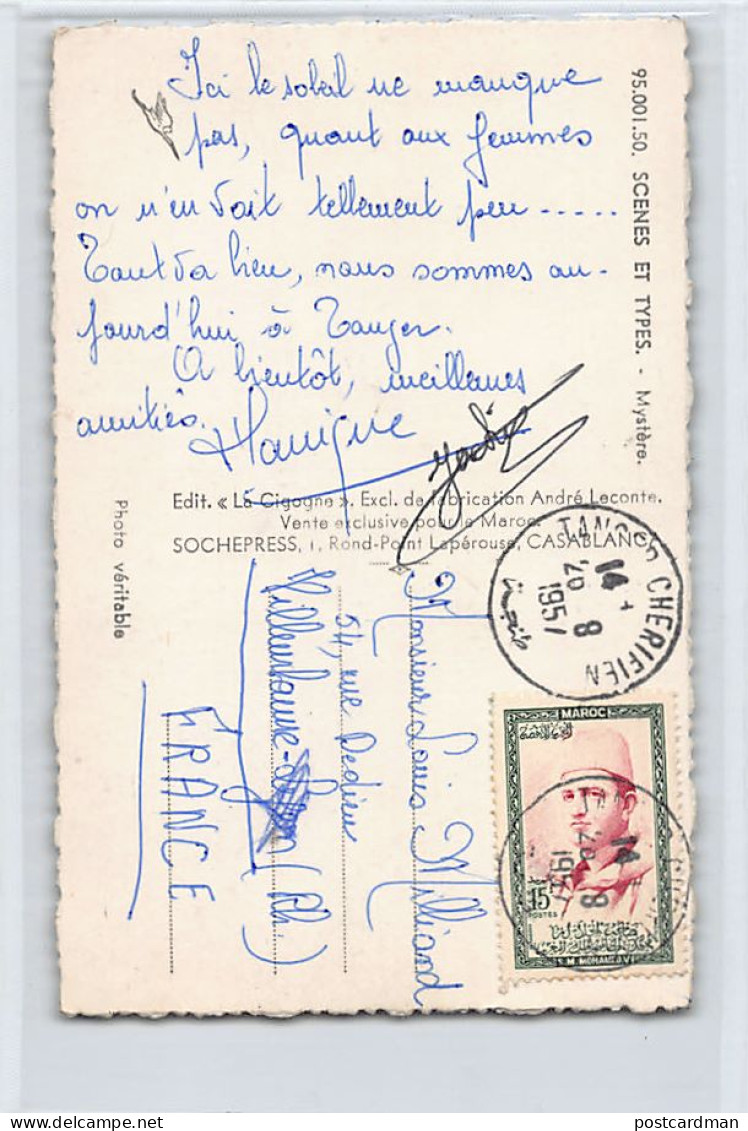 95.001.50. SCENES ET TYPES. - Mystère.
Ici le soleil ne manque
pas, quant aux femmes
on n'en voit tellement peu.....
Tout va bien, nous sommes au-
jourd'hui à Tanger.
A bientôt, meilleures
amitiés.
Edit. « La Cigogne ». Excl. de fabrication André Leconte.
Vente exclusive pour le Maroc:
SOCHEPRESS, 1, Rond-Point Lapérouse, CASABLANCA
Photo véritable
Monsieur Louis Milliand
54, rue Dedieu
Villeurbanne-Lyon (Rh.)
FRANCE
TANGER CHERIFIEN
14
26 8
1957
طنجة
MAROC
15
POSTES
S.M. MOHAMMED V
14
26 8
1957
postcardman